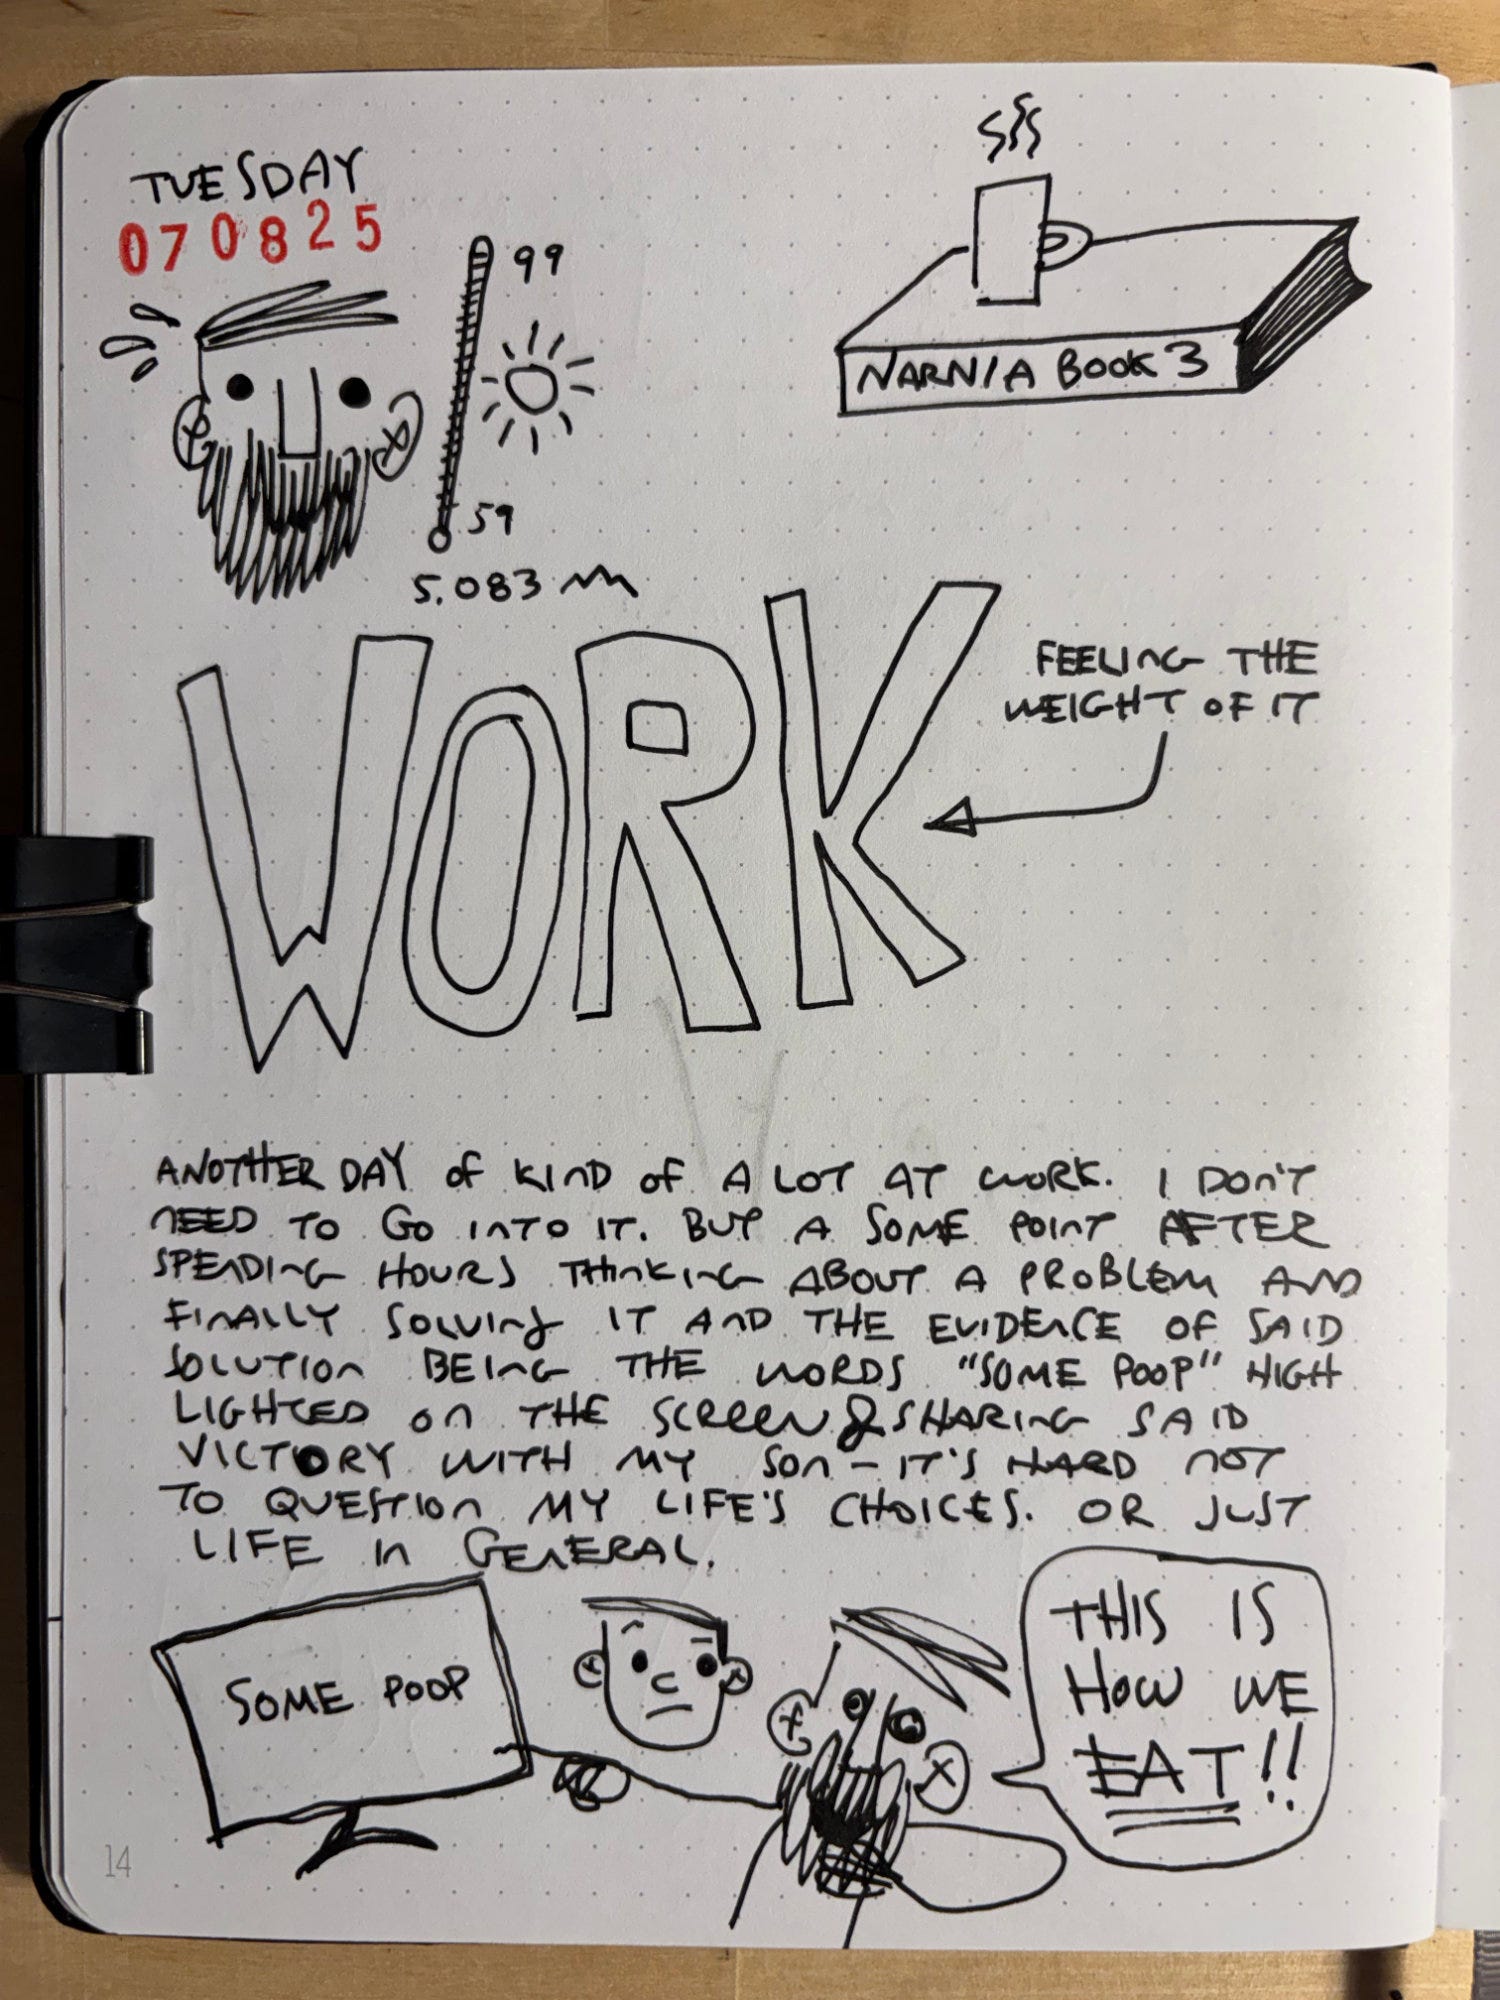 TUESDAY
070825
99
59
5.083
NARNIA BOOK 3
WORK
FEELING THE
WEIGHT OF IT
ANOTHER DAY OF KIND OF A LOT AT WORK. I DON'T
NEED TO GO INTO IT. BUT A SOME POINT AFTER
SPENDING HOURS THINKING ABOUT A PROBLEM AND
FINALLY SOLVING IT AND THE EVIDENCE OF SAID
SOLUTION BEING THE WORDS "SOME POOP" HIGH
LIGHTED ON THE SCREEN & SHARING SAID
VICTORY WITH MY SON – IT'S HARD NOT
TO QUESTION MY LIFE'S CHOICES. OR JUST
LIFE IN GENERAL.
SOME POOP
THIS IS
HOW WE
EAT!!
14